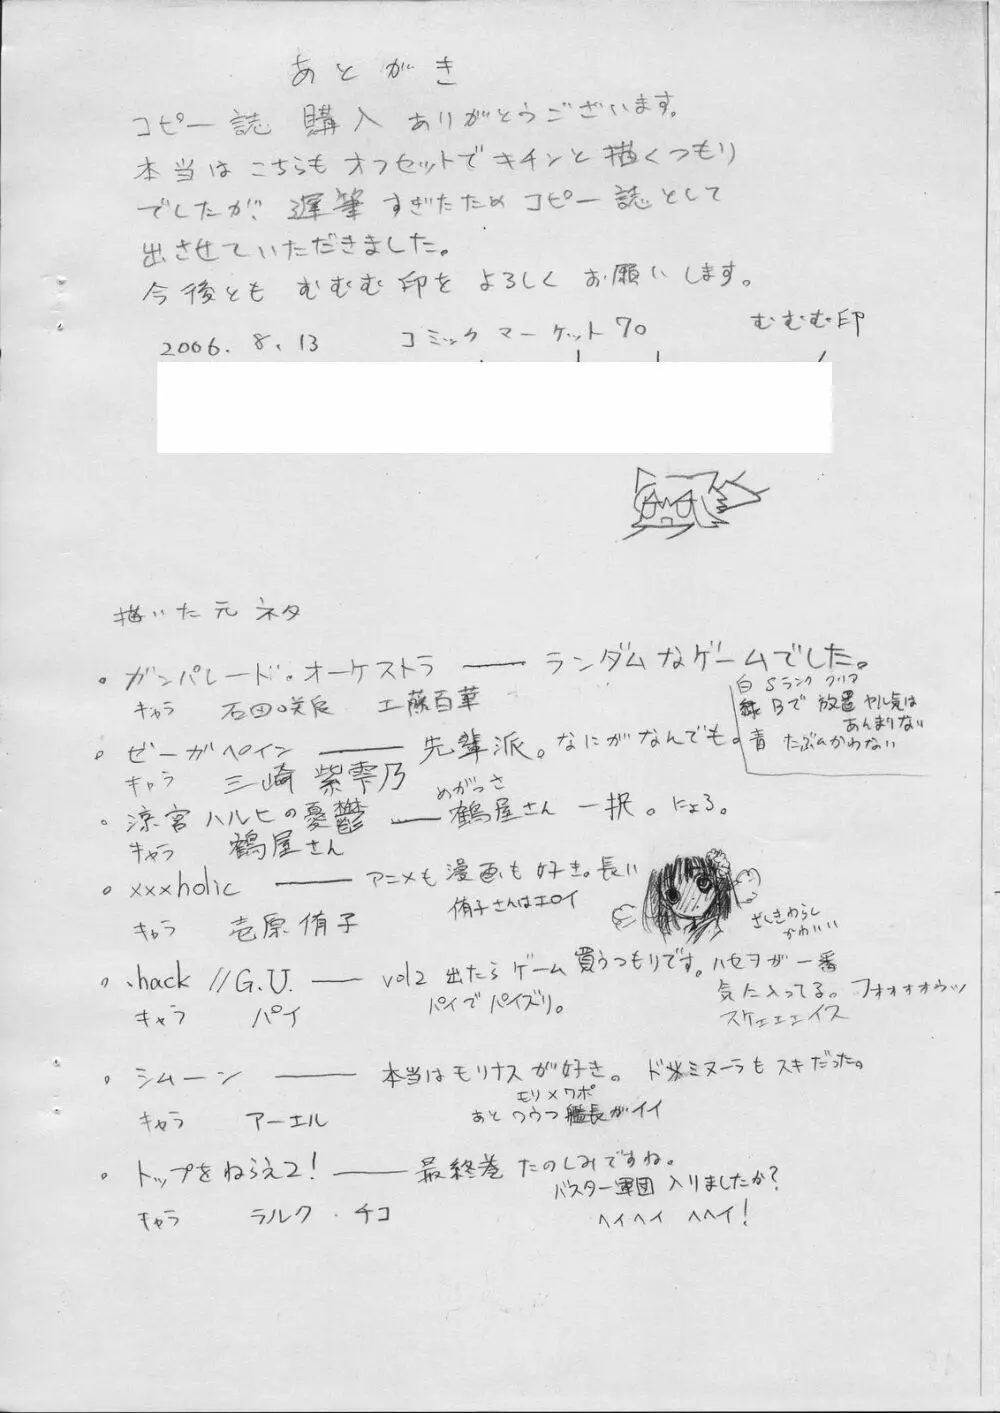 あとがき
コピー誌 購入 ありがとうございます。
本当は こちらも オフセットで キチンと 描くつもり
でしたが、遅筆 すぎたため コピー誌として
出させていただきました。
今後とも むむむ印を よろしく お願いします。
2006.8.13 コミックマーケット70 むむむ印
描いた元ネタ
・ガンパレード・オーケストラ ―― ランダムなゲームでした。
白 Sランク クリア
緑 Bで 放置 ヤル気は
あんまりない
青 たぶんかわない
キャラ 石田咲良 工藤百華
・ゼーガペイン ―― 先輩派。なにがなんでも。
キャラ 三崎 紫雫乃
・涼宮ハルヒの憂鬱 ―― 鶴屋さん 一択。にょろ。
めがっさ
キャラ 鶴屋さん
・xxxholic ―― アニメも 漫画も 好き。長い
侑子さんはエロイ
ざしきわらし
かわいい
キャラ 壱原 侑子
・.hack//G.U. ―― vol2 出たら ゲーム 買うつもりです。ハセヲが 一番
気に入ってる。フォォォォウッ
スケェェェイス
パイで パイズリ。
キャラ パイ
・シムーン ―― 本当は モリナスが好き。ドミヌーラも スキだった。
モリ×ワポ
あと ワウフ 艦長がイイ
キャラ アーエル
・トップをねらえ2! ―― 最終巻 たのしみですね。
バスター軍団 入りましたか?
ヘイヘイ ヘヘイ!
キャラ ラルク・チコ